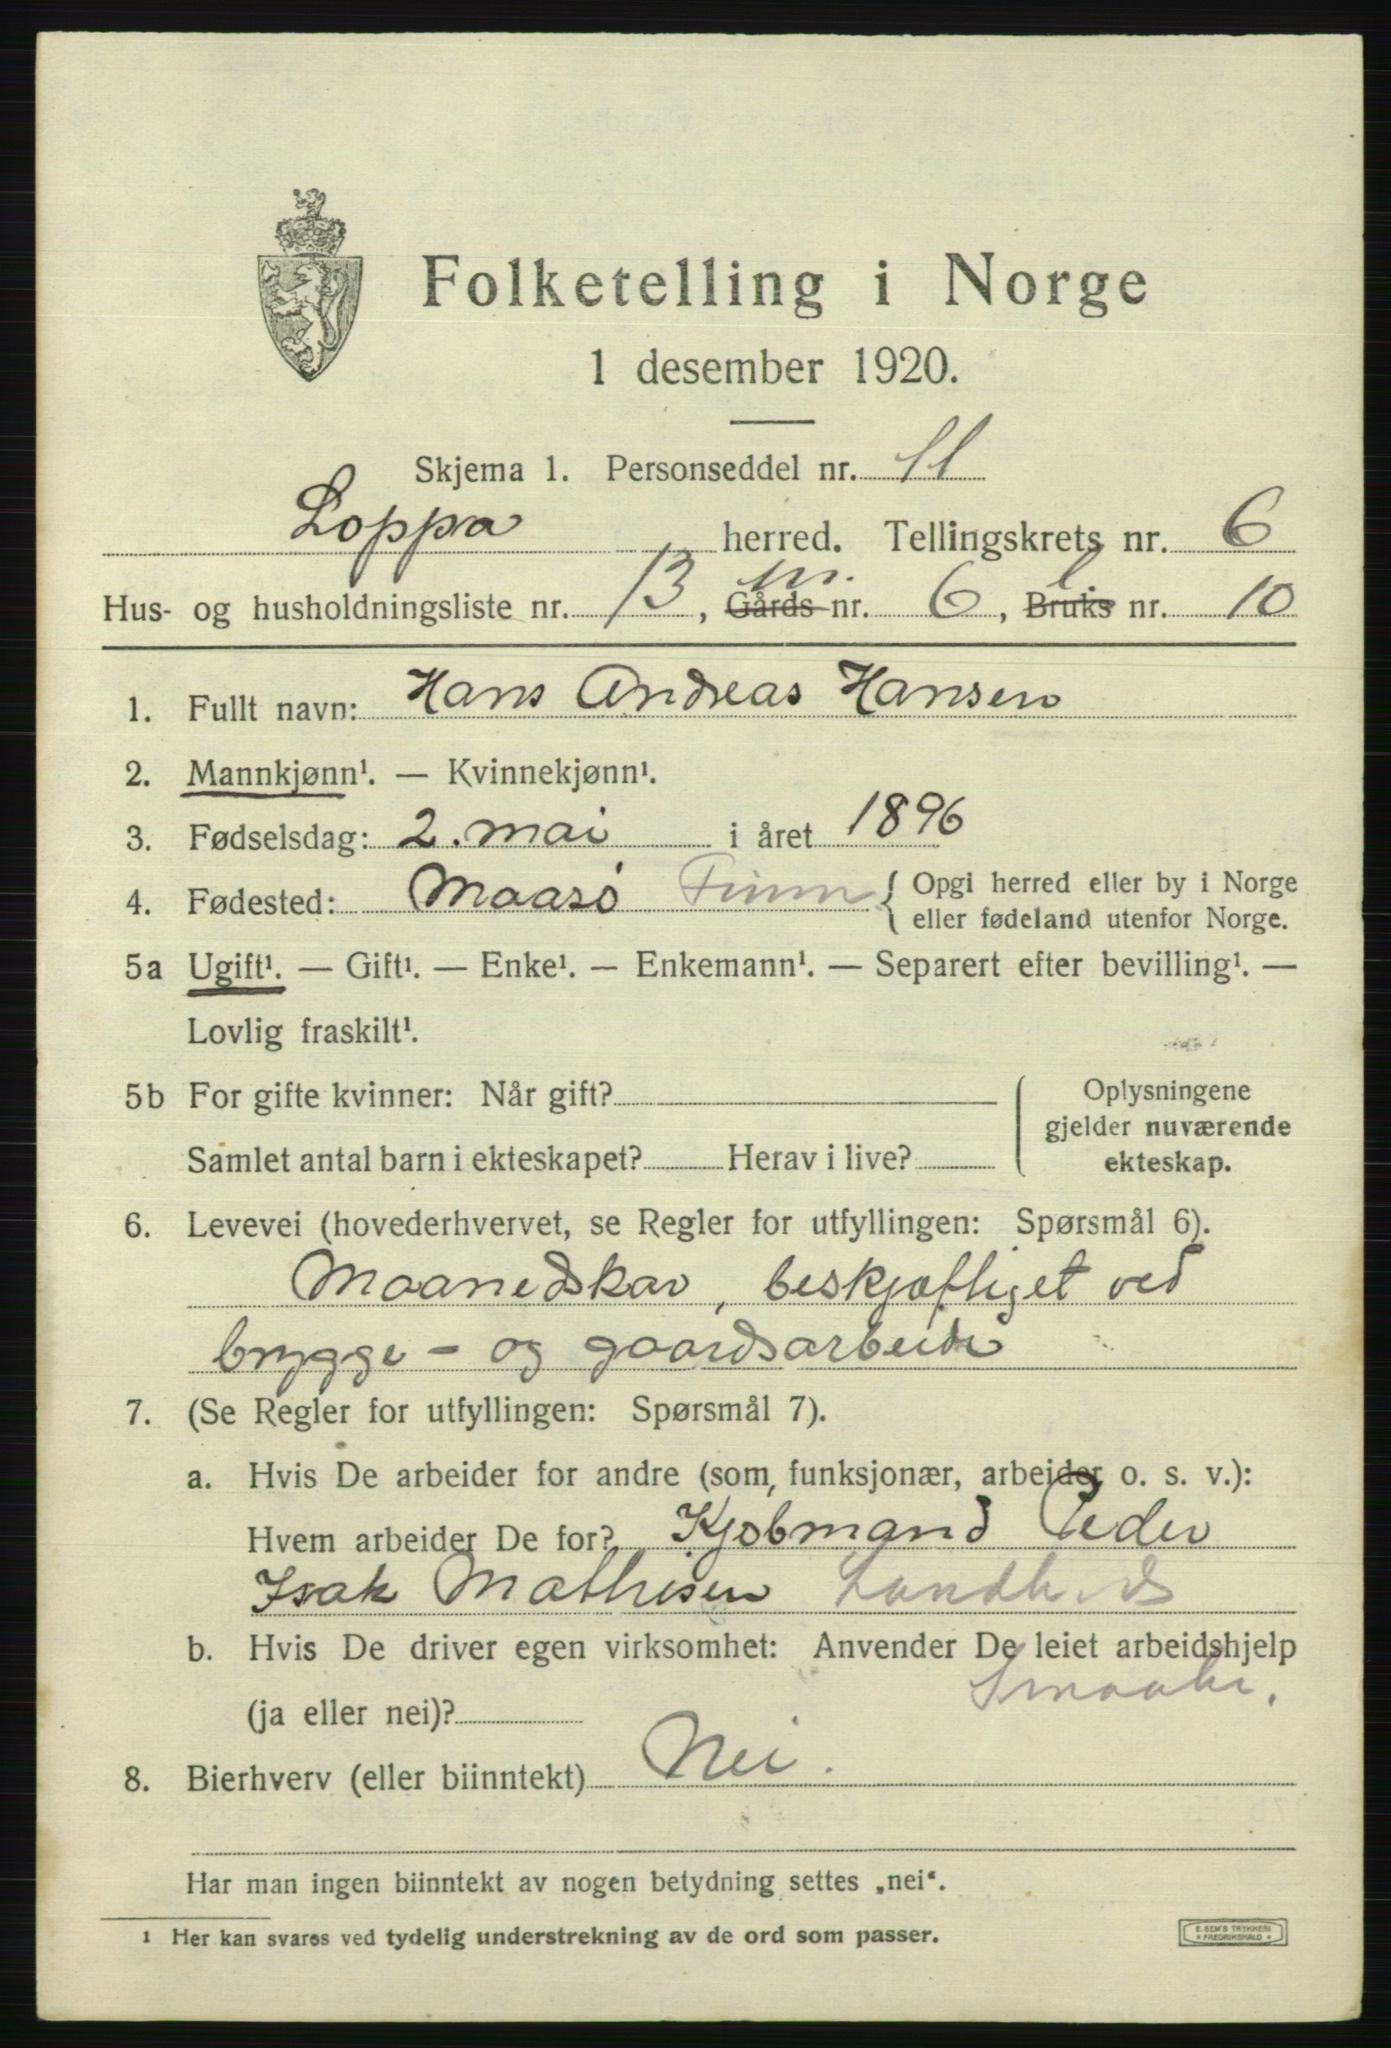 Folketelling i Norge
1 desember 1920.
Skjema 1. Personseddel nr. 11
Loppa herred. Tellingskrets nr. 6
m. l.
Hus- og husholdningsliste nr. 13, Gårds nr. 6, Bruks nr. 10
1. Fullt navn: Hans Andreas Hansen
2. Mannkjønn¹. — Kvinnekjønn¹.
3. Fødselsdag: 2. mai i året 1896
4. Fødested: Maasö Finm { Opgi herred eller by i Norge
eller fødeland utenfor Norge.
5a Ugift¹. — Gift¹. — Enke¹. — Enkemann¹. — Separert efter bevilling¹. —
Lovlig fraskilt¹.
5b For gifte kvinner: Når gift? Oplysningene
gjelder nuværende
Samlet antal barn i ekteskapet? Herav i live? ekteskap.
6. Levevei (hovederhvervet, se Regler for utfyllingen: Spørsmål 6).
Maanedskar, beskjæftiget ved
brygge- og gaardsarbeide
7. (Se Regler for utfyllingen: Spørsmål 7).
a. Hvis De arbeider for andre (som funksjonær, arbeider o. s. v.):
Hvem arbeider De for? Kjøbmand Peder
Isak Mathisen
b. Hvis De driver egen virksomhet: Anvender De leiet arbeidshjelp
(ja eller nei)?
8. Bierhverv (eller biinntekt) Nei.
Har man ingen biinntekt av nogen betydning settes „nei“.
1 Her kan svares ved tydelig understrekning av de ord som passer.
E. SEM'S TRYKKERI
* FREDRIKSHALD *